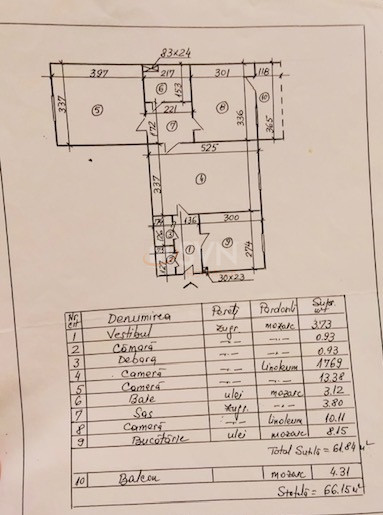 83x24
397 217 301 118
6 153
337 5 221 8 10
172 7 336 365
525
337 4
136 300
1 9 274
127
30x23
Nr. crt Denumirea Pereţi Pardoseli Supr. m²
1 Vestibul zugr. mozaic 3.73
2 Cămară -.- -.- 0.93
3 Debara -.- -.- 0.93
4 Cameră -.- Linoleum 17.69
5 Cameră -.- -.- 13.38
6 Baie ulei mozaic 3.12
7 Sas zugr. -.- 3.80
8 Cameră -.- linoleum 10.11
9 Bucătărie ulei mozaic 8.15
Total Sutilă = 61.84 m²
10 Balcon mozaic 4.31
Stotală = 66.15 m²